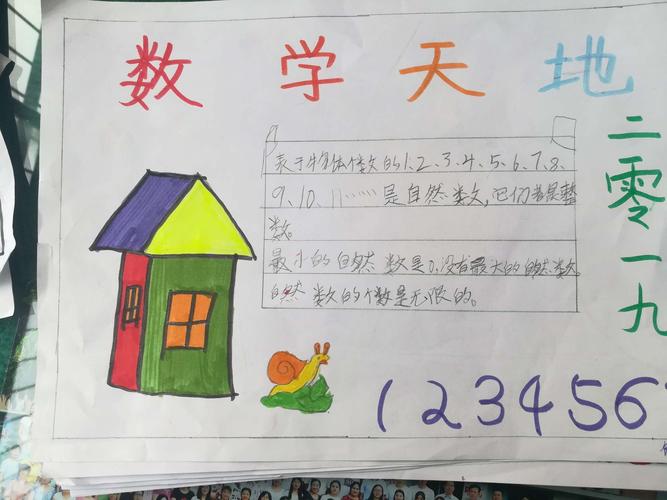 数学天地
表于物体个数的1、2、3、4、5、6、7、8、
9、10、11……是自然数，它们都是整
数。
最小的自然数是0，没有最大的自然数
自然数的个数是无限的。
二零一九
123456